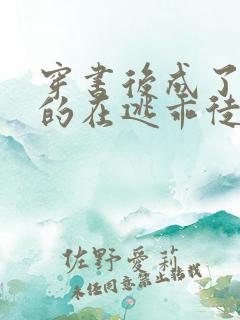 穿書後成了
的在逃乖徒
佐野愛莉
未任同意禁止轉載